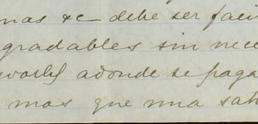 mas &c— debe ser faci
gradables sin nece
adonde se paga
mas que una sah